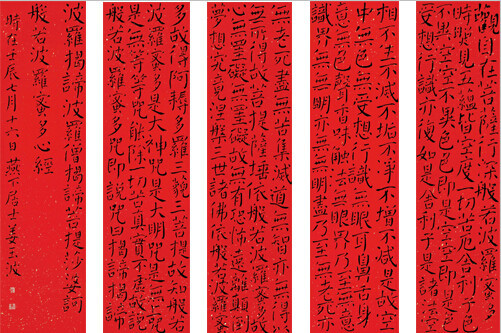 觀自在菩薩行深般若波羅蜜多
時照見五蘊皆空度一切苦厄舍利子色
不異空空不異色色即是空空即是色
受想行識亦復如是舍利子是諸法空
相不生不滅不垢不淨不增不減是故空
中無色無受想行識無眼耳鼻舌身
意無色聲香味觸法無眼界乃至無意
識界無無明亦無無明盡乃至無老死亦
無老死盡無苦集滅道無智亦無得以
無所得故菩提薩埵依般若波羅蜜多故
心無罣礙無罣礙故無有恐怖遠離顛倒
夢想究竟涅槃三世諸佛依般若波羅蜜
多故得阿耨多羅三藐三菩提故知般若
波羅蜜多是大神咒是大明咒是無上咒
是無等等咒能除一切苦真實不虛故說
般若波羅蜜多咒即說咒曰揭諦揭諦
波羅揭諦波羅僧揭諦菩提娑婆訶
般若波羅蜜多心經
時在壬辰七月十六日燕下居士姜玉波